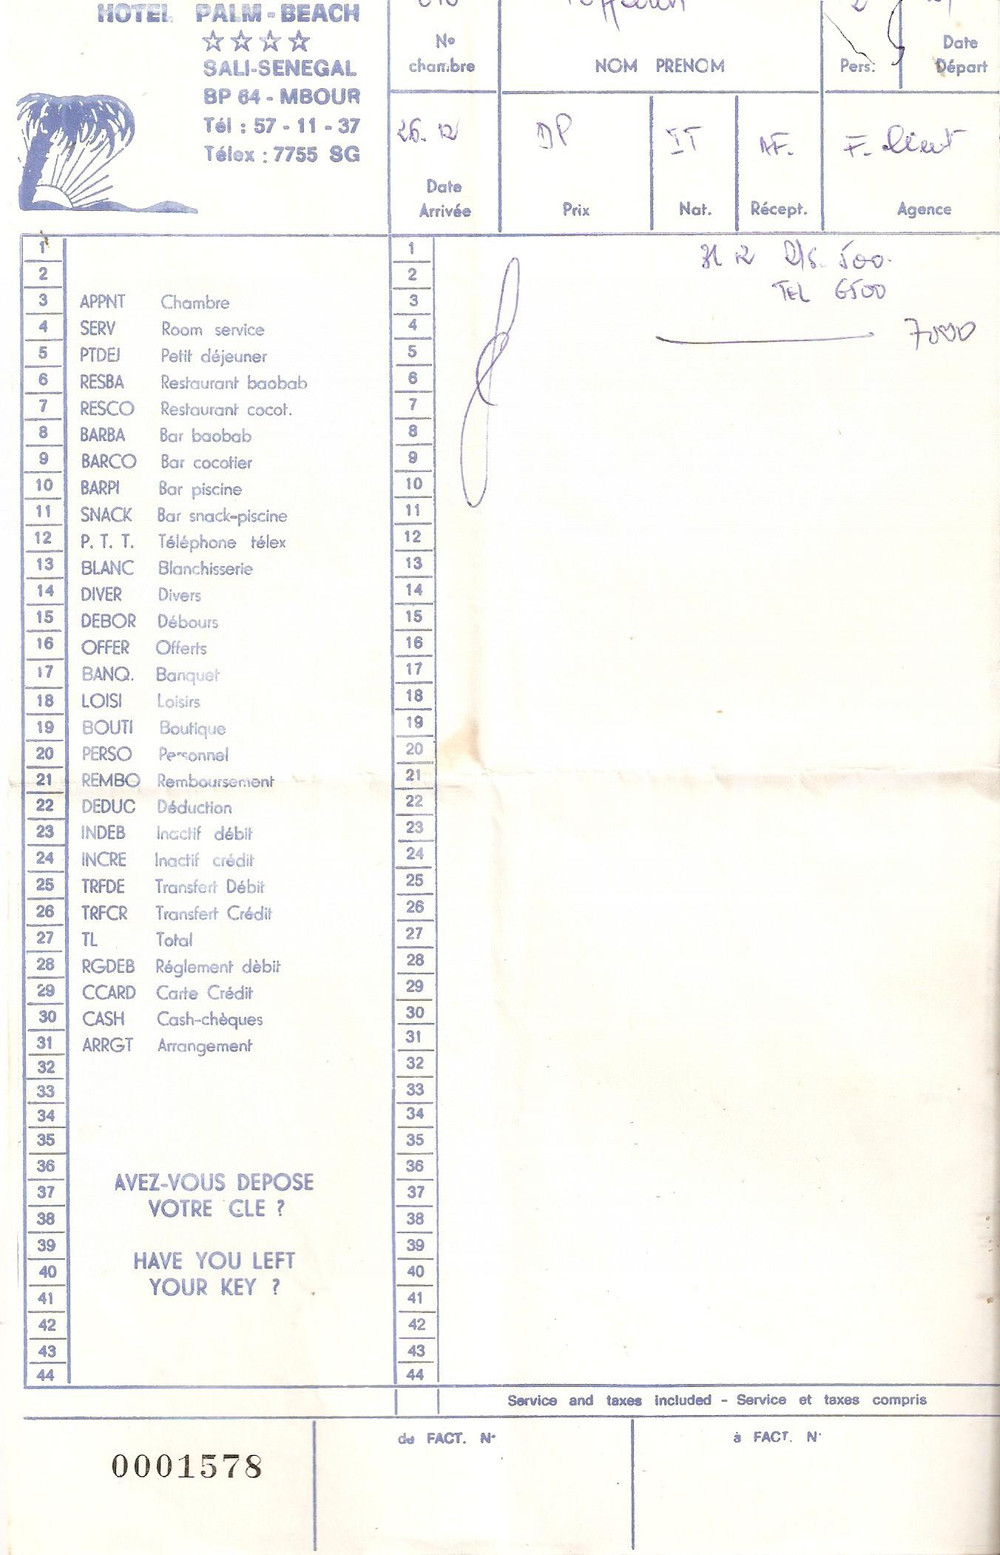 HOTEL PALM-BEACH
SALI-SENEGAL
BP 64 - MBOUR
Tél : 57 - 11 - 37
Télex : 7755 SG
No chambre
NOM PRENOM
Pers:
Date Départ
26.12
DP
IT
AF.
F. Client
Date Arrivée
Prix
Nat.
Récept.
Agence
31 12 R/S. 500.
TEL 6500
7000
1 1
2 2
3 APPNT Chambre 3
4 SERV Room service 4
5 PTDEJ Petit déjeuner 5
6 RESBA Restaurant baobab 6
7 RESCO Restaurant cocot. 7
8 BARBA Bar baobab 8
9 BARCO Bar cocotier 9
10 BARPI Bar piscine 10
11 SNACK Bar snack-piscine 11
12 P. T. T. Téléphone télex 12
13 BLANC Blanchisserie 13
14 DIVER Divers 14
15 DEBOR Débours 15
16 OFFER Offerts 16
17 BANQ. Banquet 17
18 LOISI Loisirs 18
19 BOUTI Boutique 19
20 PERSO Personnel 20
21 REMBO Remboursement 21
22 DEDUC Déduction 22
23 INDEB Inactif débit 23
24 INCRE Inactif crédit 24
25 TRFDE Transfert Débit 25
26 TRFCR Transfert Crédit 26
27 TL Total 27
28 RGDEB Réglement dèbit 28
29 CCARD Carte Crédit 29
30 CASH Cash-chèques 30
31 ARRGT Arrangement 31
32 32
33 33
34 34
35 35
36 36
37 37
38 38
39 39
40 40
41 41
42 42
43 43
44 44
AVEZ-VOUS DEPOSE
VOTRE CLE ?
HAVE YOU LEFT
YOUR KEY ?
Service and taxes included - Service et taxes compris
0001578
de FACT. N°
à FACT. N°